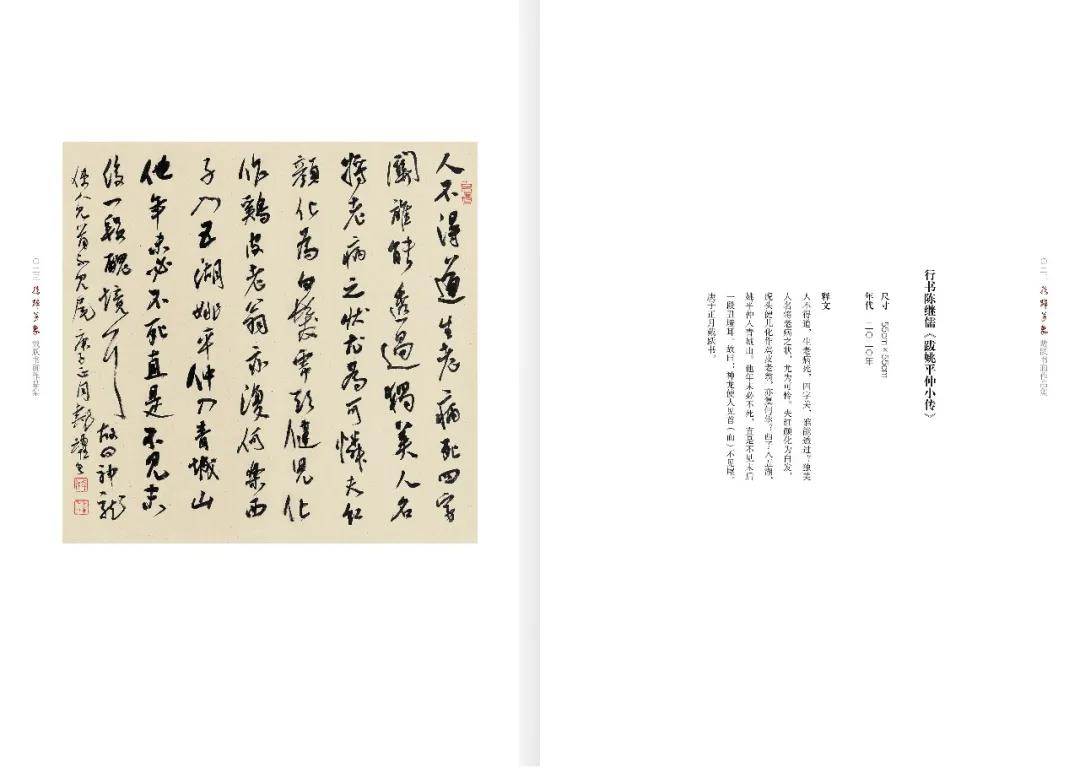 〇二二
戴跃书画作品集
行书陈继儒《跋姚平仲小传》
尺寸 55cm×55cm
年代 二〇二〇年
释文
人不得道，生老病死，四字关，谁能透过？独美
人名将老病之状，尤为可怜。夫红颜化为白发，
虎头健儿化作鸡皮老翁，亦复何乐？西子入五湖，
姚平仲入青城山。他年未必不死，直是不见末后
一段丑境耳。故曰：神龙使人见首（而）不见尾。
庚子正月戴跃书。
人不得道生老病死四字
關誰能透過獨美人名
將老病之狀尤為可憐夫紅
顏化為白髮虎頭健兒化
作鷄皮老翁亦復何樂西
子入五湖姚平仲入青城山
他年未必不死直是不見末
後一段醜境耳故曰神龍
使人見首不見尾庚子正月戴躍書
〇二三
戴跃书画作品集